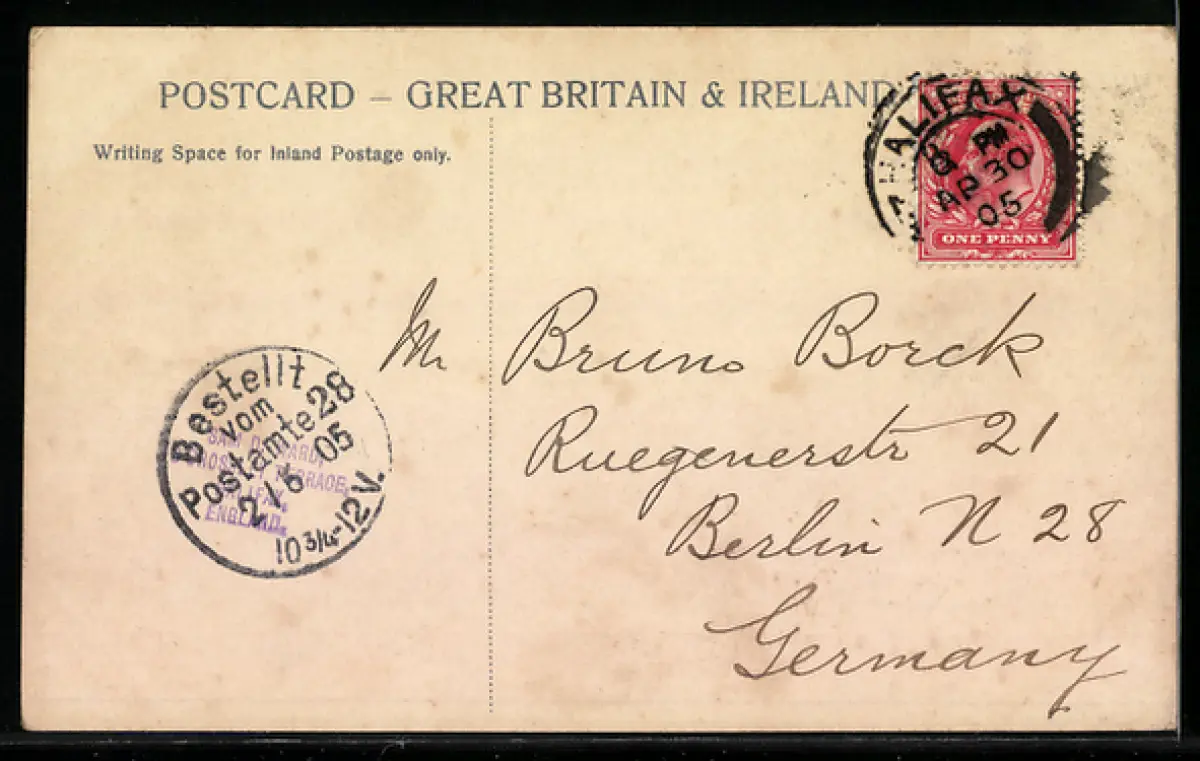 POSTCARD – GREAT BRITAIN & IRELAND
Writing Space for Inland Postage only.
HALIFAX
8 PM
AP 30
05
ONE PENNY
Mr Bruno Borck
Ruegenerstr 21
Berlin N 28
Germany
Bestellt
vom
Postamte 28
2/5 05
10 3/4-12 V.
TERRACE,
HALIFAX,
ENGLAND.